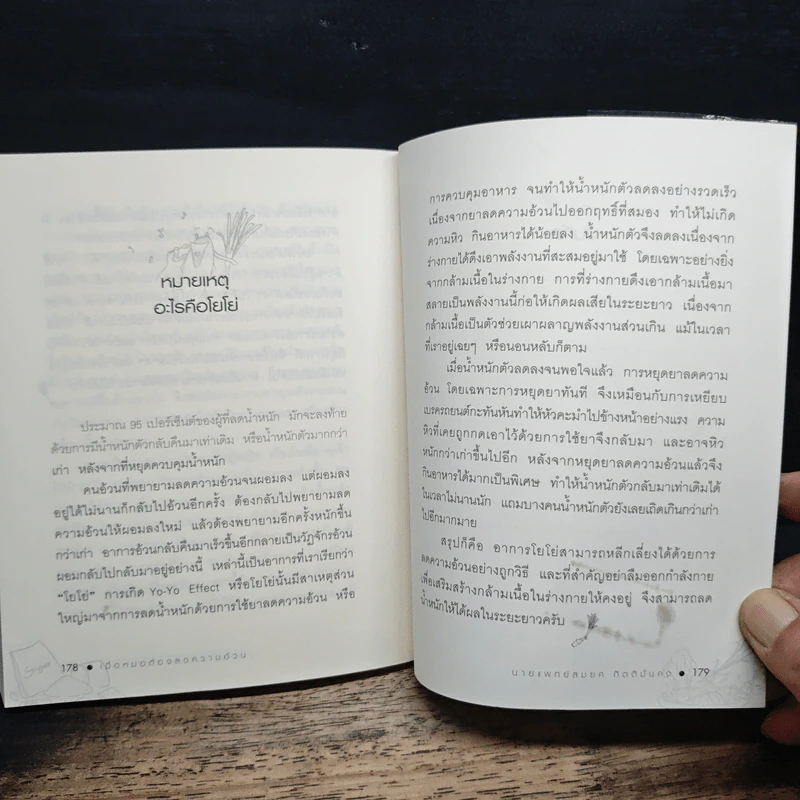 หมายเหตุ
อะไรคือโยโย่
ประมาณ 95 เปอร์เซ็นต์ของผู้ที่ลดน้ำหนัก มักจะลงท้าย
ด้วยการมีน้ำหนักตัวกลับคืนมาเท่าเดิม หรือน้ำหนักตัวมากกว่า
เก่า หลังจากที่หยุดควบคุมน้ำหนัก
คนอ้วนที่พยายามลดความอ้วนจนผอมลง แต่ผอมลง
อยู่ได้ไม่นานก็กลับไปอ้วนอีกครั้ง ต้องกลับไปพยายามลด
ความอ้วนให้ผอมลงใหม่ แล้วต้องพยายามอีกครั้งหนักขึ้น
กว่าเก่า อาการอ้วนกลับคืนมาเร็วขึ้นอีกกลายเป็นวัฏจักรอ้วน
ผอมกลับไปกลับมาอยู่อย่างนี้ เหล่านี้เป็นอาการที่เราเรียกว่า
“โยโย่” การเกิด Yo-Yo Effect หรือโยโย่นั้นมีสาเหตุส่วน
ใหญ่มาจากการลดน้ำหนักด้วยการใช้ยาลดความอ้วน หรือ
178 ● เมื่อหมอต้องลดความอ้วน
การควบคุมอาหาร จนทำให้น้ำหนักตัวลดลงอย่างรวดเร็ว
เนื่องจากยาลดความอ้วนไปออกฤทธิ์ที่สมอง ทำให้ไม่เกิด
ความหิว กินอาหารได้น้อยลง น้ำหนักตัวจึงลดลงเนื่องจาก
ร่างกายได้ดึงเอาพลังงานที่สะสมอยู่มาใช้ โดยเฉพาะอย่างยิ่ง
จากกล้ามเนื้อในร่างกาย การที่ร่างกายดึงเอากล้ามเนื้อมา
สลายเป็นพลังงานนี้ก่อให้เกิดผลเสียในระยะยาว เนื่องจาก
กล้ามเนื้อเป็นตัวช่วยเผาผลาญพลังงานส่วนเกิน แม้ในเวลา
ที่เราอยู่เฉยๆ หรือนอนหลับก็ตาม
เมื่อน้ำหนักตัวลดลงจนพอใจแล้ว การหยุดยาลดความ
อ้วน โดยเฉพาะการหยุดยาทันที จึงเหมือนกับการเหยียบ
เบรครถยนต์กะทันหันทำให้หัวคะมำไปข้างหน้าอย่างแรง ความ
หิวที่เคยถูกกดเอาไว้ด้วยการใช้ยาจึงกลับมา และอาจหิว
หนักกว่าเก่าขึ้นไปอีก หลังจากหยุดยาลดความอ้วนแล้วจึง
กินอาหารได้มากเป็นพิเศษ ทำให้น้ำหนักตัวกลับมาเท่าเดิมได้
ในเวลาไม่นานนัก แถมบางคนน้ำหนักตัวยังเลยเถิดเกินกว่าเก่า
ไปอีกมากมาย
สรุปก็คือ อาการโยโย่สามารถหลีกเลี่ยงได้ด้วยการ
ลดความอ้วนอย่างถูกวิธี และที่สำคัญอย่าลืมออกกำลังกาย
เพื่อเสริมสร้างกล้ามเนื้อในร่างกายให้คงอยู่ จึงสามารถลด
น้ำหนักให้ได้ผลในระยะยาวครับ
นายแพทย์สมยศ กิตติมั่นคง ● 179